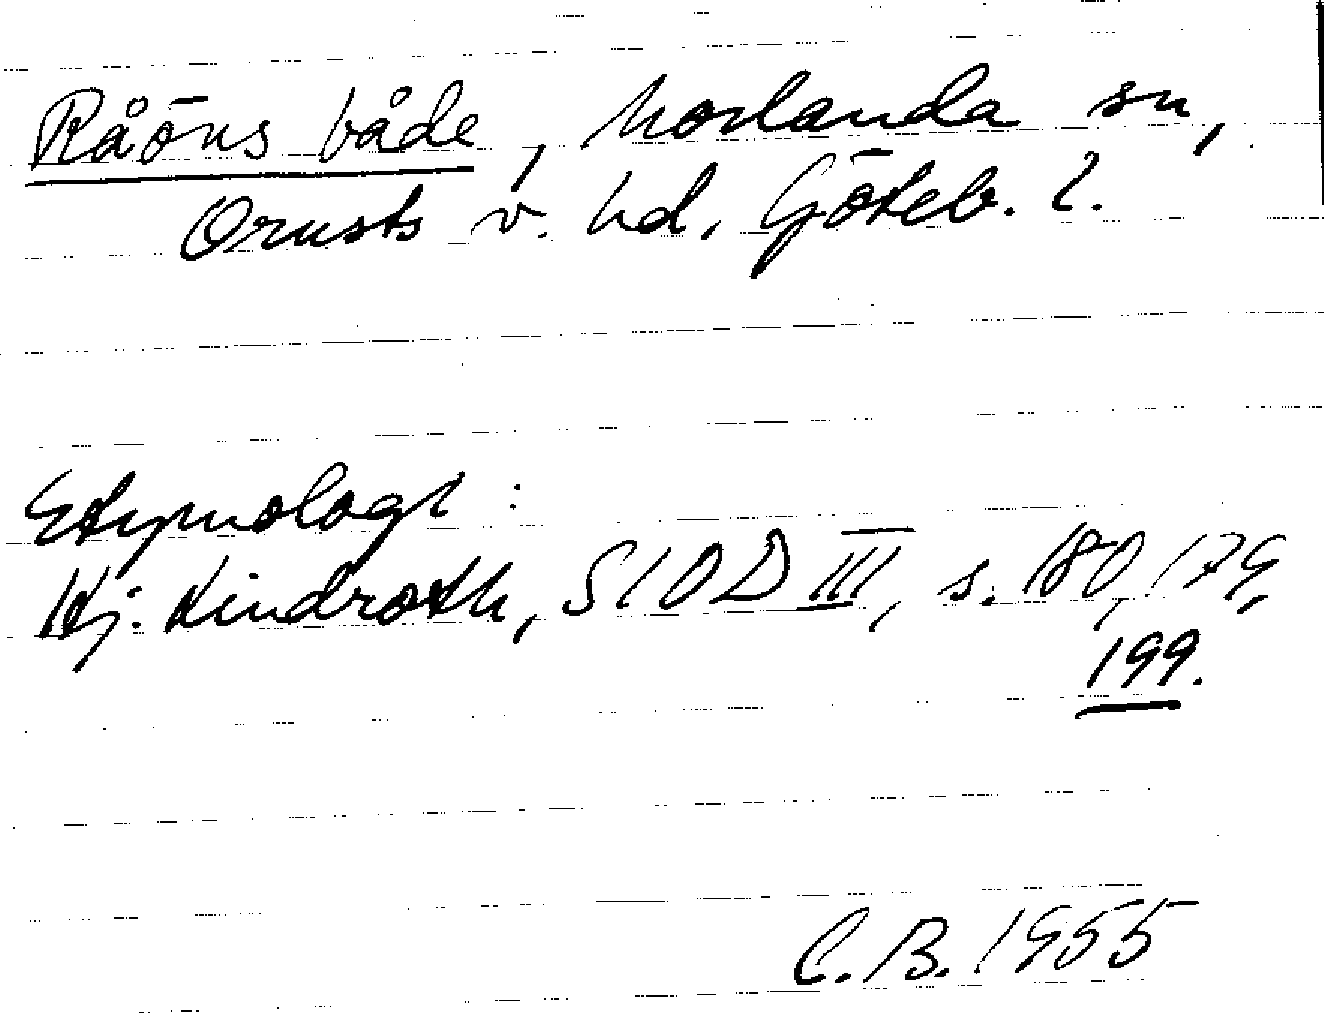 Råöns både, Morlanda sn,
Orusts v. hd. Göteb. l.
Etymologi :
Hj. Lindroth, SIOD III, s. 180, 179,
199.
C.B. 1955